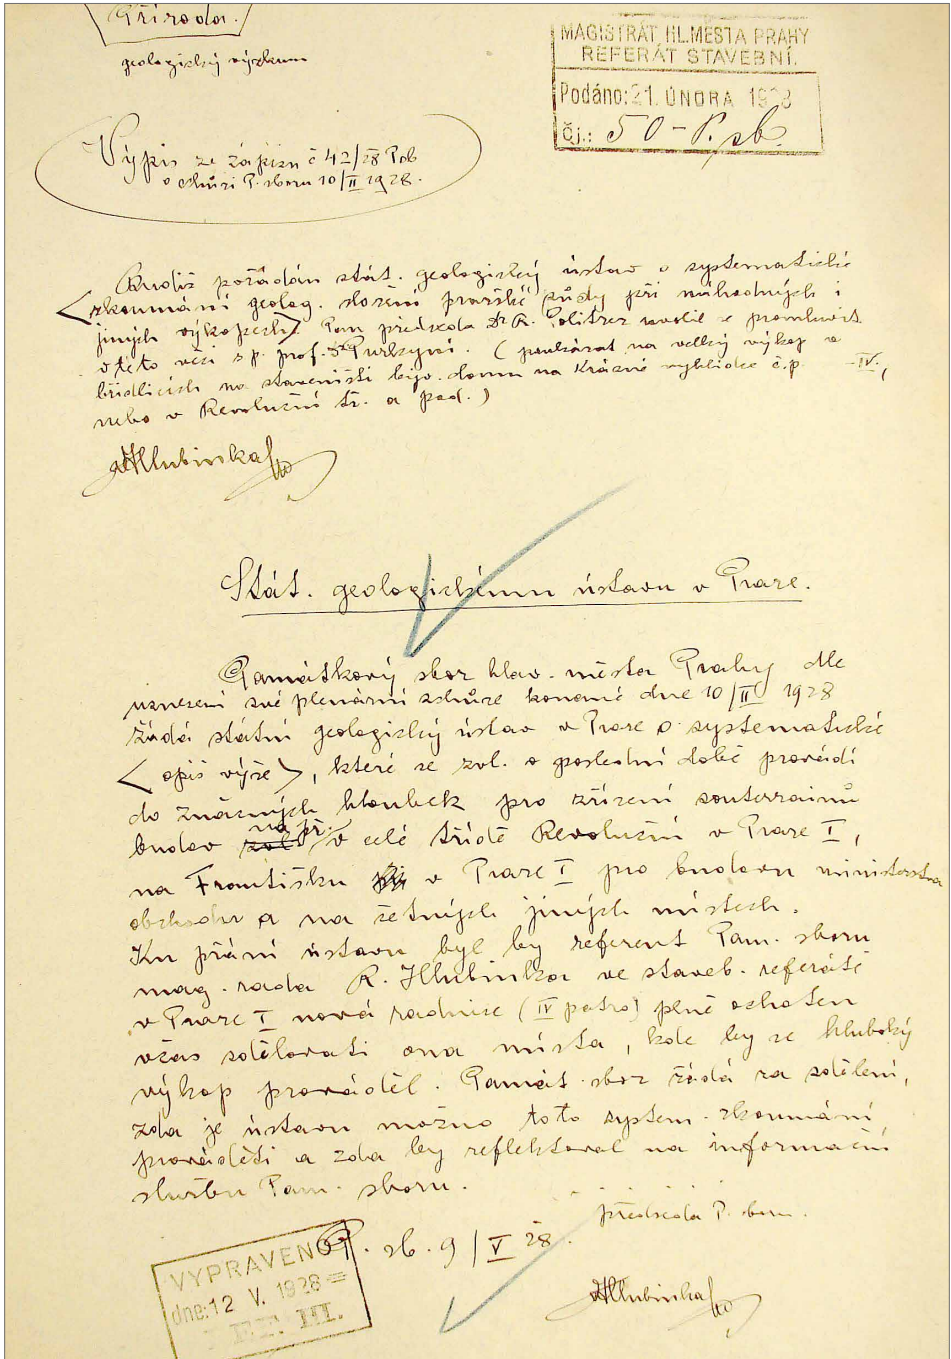 Příroda.
geologický výzkum
MAGISTRÁT HL. MĚSTA PRAHY
REFERÁT STAVEBNÍ.
Podáno: 21. ÚNORA 1928
čj.: 50 - P. sb.
Výpis ze zápisu č 42/28 Psb
o schůzi P. sboru 10/II 1928.
Budiž požádán stát. geologický ústav o systematické
<zkoumání geolog. složení pražské půdy při náhodných i
jiných výkopech>. Pan předseda Dr R. promluvit
o této věci s p. prof. Dr Purkyní. (poukázat na velký výkop v
břidlicích na staveništi domu na Krásné vyhlídce č.p. -IV.,
nebo v Revoluční tř. a pod.)
Hlubinka
Stát. geologickému ústavu v Praze.
Památkový sbor hlav. města Prahy dle
usnesení své plenární schůze konané dne 10/II 1928
žádá státní geologický ústav v Praze o systematické
<opiš výše>, které se zvl. v poslední době provádí
do značných hloubek pro zřízení souterrainů
budov na př. v celé třídě Revoluční v Praze I,
na Františku v Praze I pro budovu ministerstva
obchodu a na četných jiných místech.
Ku přání ústavu byl by referent Pam. sboru
mag. rada R. Hlubinka ve staveb. referátě
v Praze I nová radnice (IV patro) plně ochoten
včas sdělovati ona místa, kde by se hluboký
výkop prováděl. Památ. sbor žádá za sdělení,
zda je ústavu možno toto system. zkoumání
prováděti a zda by reflektoval na informační
službu Pam. sboru.
předseda P. sboru.
P. sb. 9/V 28.
Hlubinka
VYPRAVENO
dne: 12 V. 1928
III.